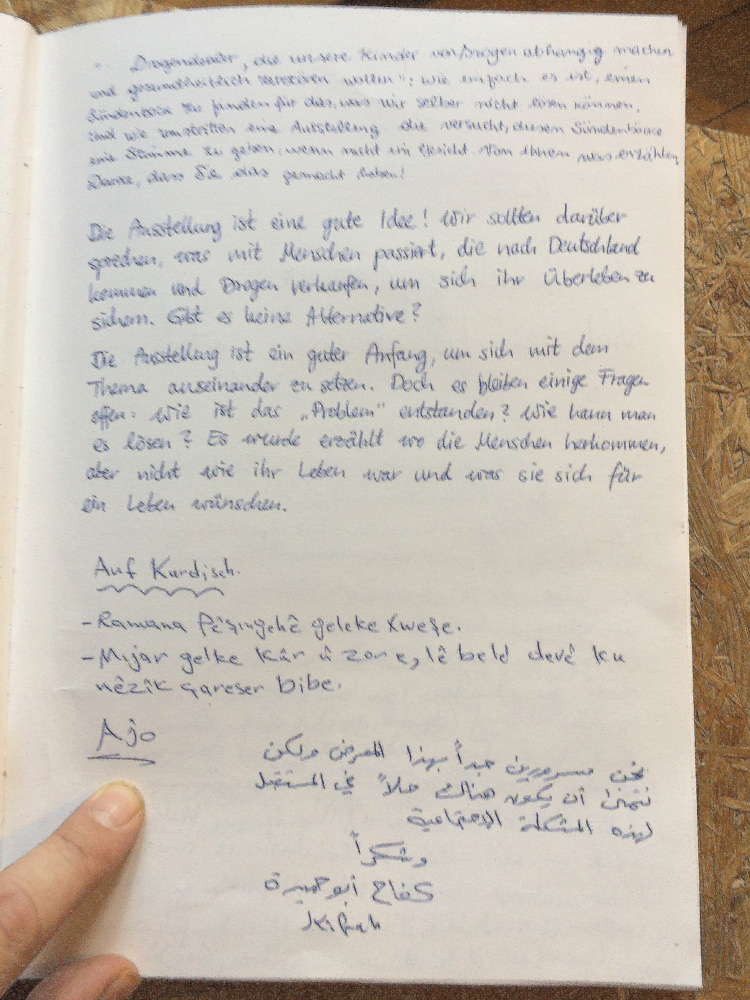 "Drogendealer, die unsere Kinder von Drogen abhängig machen
und gesundheitlich zerstören wollen": wie einfach es ist, einen
Sündenbock zu finden für das, was wir selber nicht lösen können,
und wie umstritten eine Ausstellung die versucht, diesen Sündenböcke
eine Stimme zu geben, wenn nicht ein Gesicht. Von Ihnen was erzählen
Danke, dass Sie das gemacht haben!
Die Ausstellung ist eine gute Idee! Wir sollten darüber
sprechen, was mit Menschen passiert, die nach Deutschland
kommen und Drogen verkaufen, um sich ihr Überleben zu
sichern. Gibt es keine Alternative?
Die Ausstellung ist ein guter Anfang, um sich mit dem
Thema auseinander zu setzen. Doch es bleiben einige Fragen
offen: Wie ist das „Problem" entstanden? Wie kann man
es lösen? Es wurde erzählt wo die Menschen herkommen,
aber nicht wie ihr Leben war und was sie sich für
ein Leben wünschen.
Auf Kurdisch.
- Ramana Pêşingehê geleke Xweşe.
- Mijar gelke kûr û zor e, lê belê devê ku
nêzîk çareser bibe.
Ajo
نحن مسرورين جداً بهذا المعرض ولكن
نتمنى أن يكون هناك حلاً في المستقبل
لهذه المشكلة الاجتماعية
وشكراً
كفاح أبو حميرة
Kifah